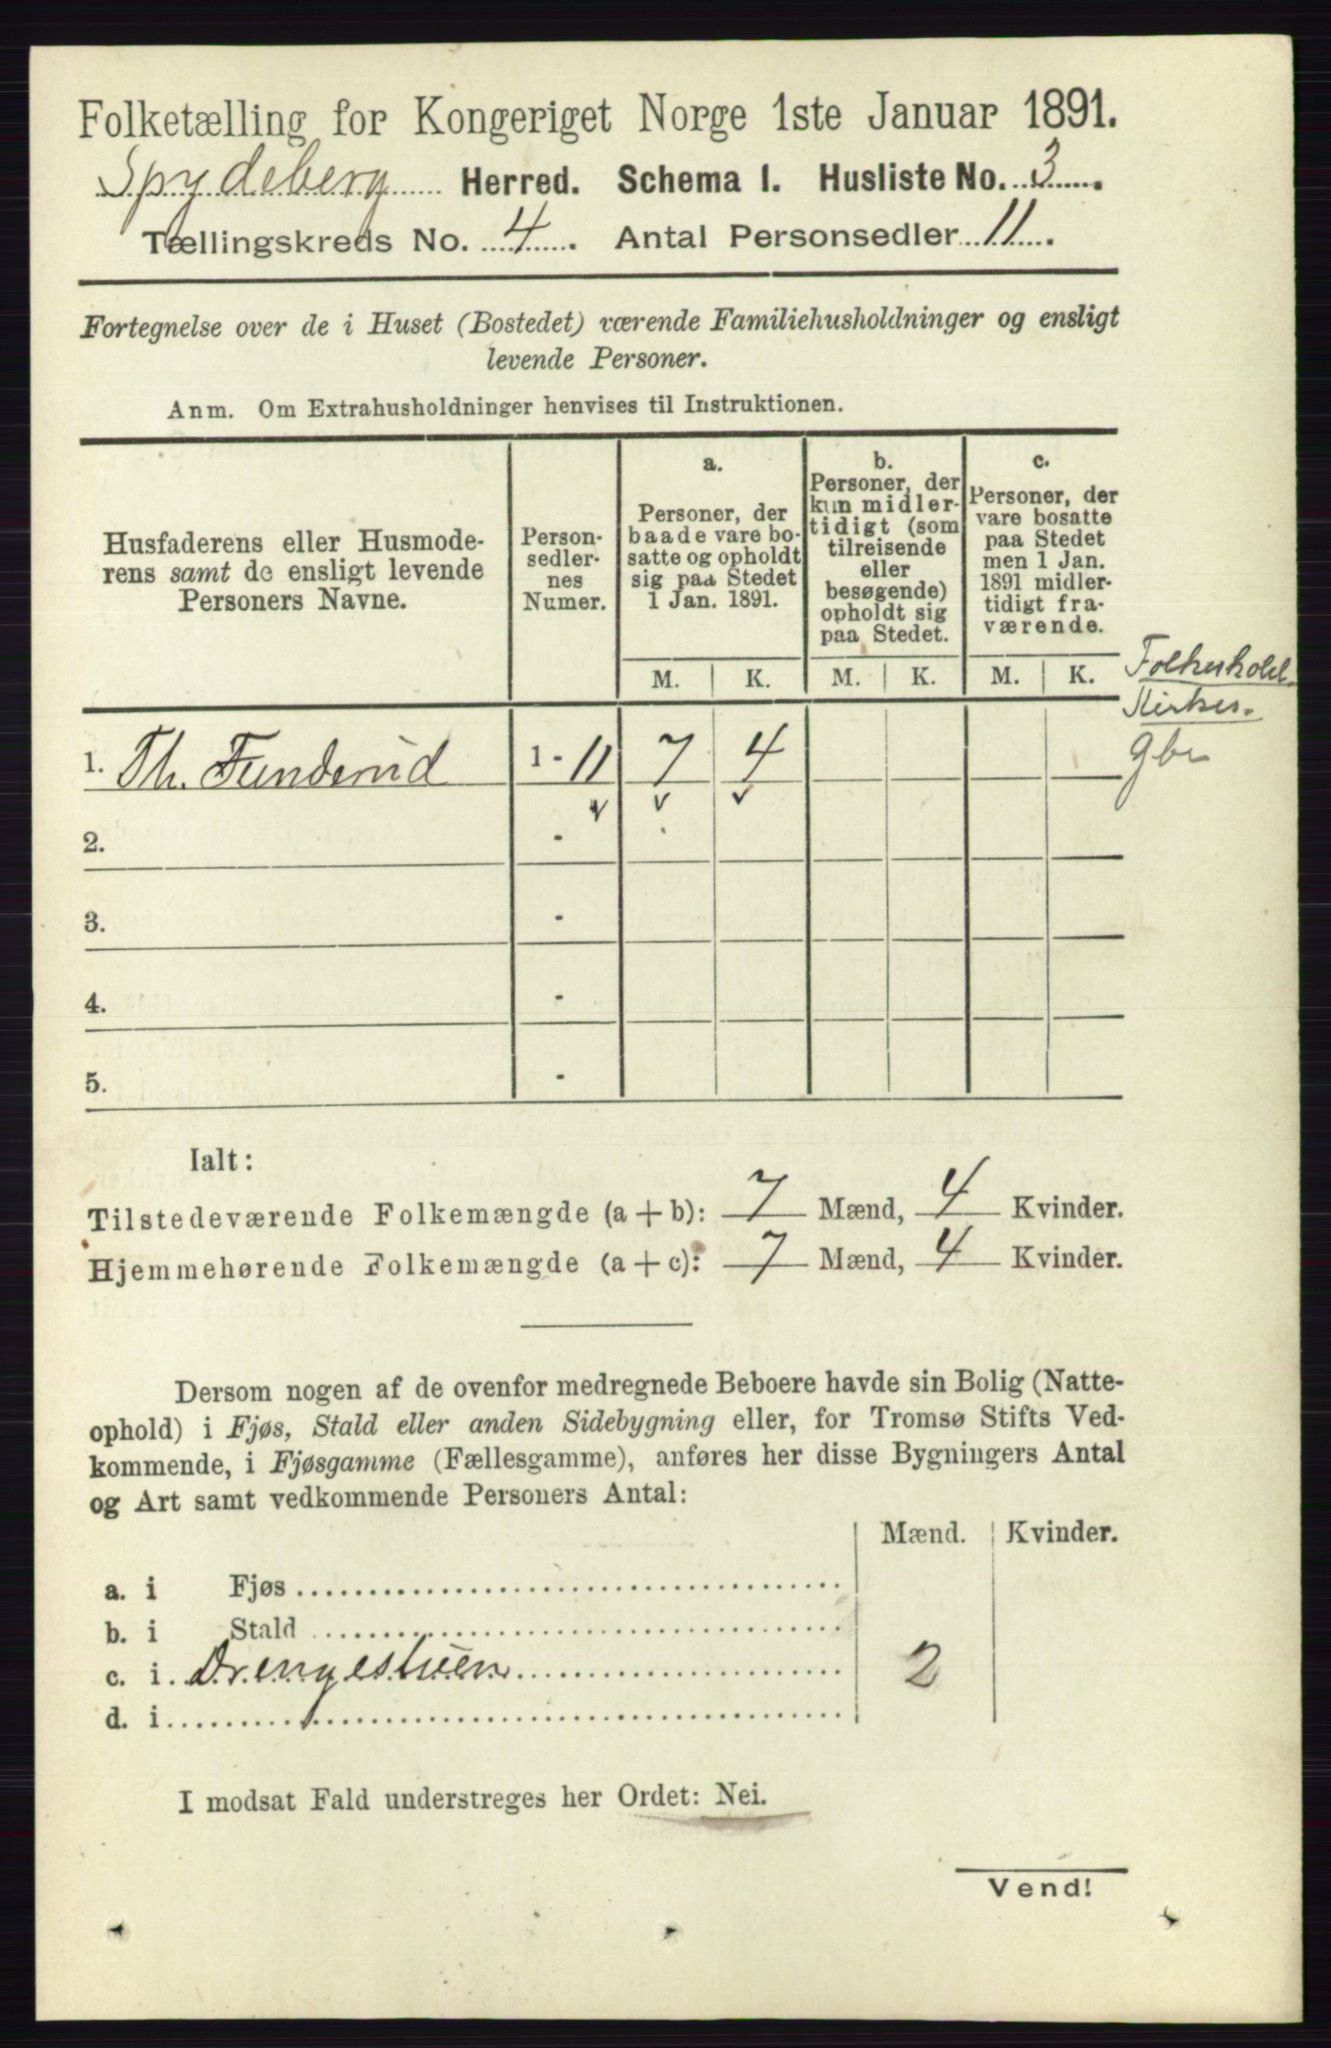 Folketælling for Kongeriget Norge 1ste Januar 1891.
Spydeberg Herred. Schema I. Husliste No. 3.
Tællingskreds No. 4. Antal Personsedler 11.
Fortegnelse over de i Huset (Bostedet) værende Familiehusholdninger og ensligt
levende Personer.
Anm. Om Extrahusholdninger henvises til Instruktionen.
Husfaderens eller Husmode-
rens samt de ensligt levende
Personers Navne.
Person-
sedler-
nes
Numer.
a.
Personer, der
baade vare bo-
satte og opholdt
sig paa Stedet
1 Jan. 1891.
b.
Personer, der
kun midler-
tidigt (som
tilreisende
eller
besøgende)
opholdt sig
paa Stedet.
c.
Personer, der
vare bosatte
paa Stedet
men 1 Jan.
1891 midler-
tidigt fra-
værende.
M. K. M. K. M. K.
1. Th. Funderud 1 - 11 7 4
2. -
3. -
4. -
5. -
Ialt:
Tilstedeværende Folkemængde (a + b): 7 Mænd, 4 Kvinder.
Hjemmehørende Folkemængde (a + c): 7 Mænd, 4 Kvinder.
Dersom nogen af de ovenfor medregnede Beboere havde sin Bolig (Natte-
ophold) i Fjøs, Stald eller anden Sidebygning eller, for Tromsø Stifts Ved-
kommende, i Fjøsgamme (Fællesgamme), anføres her disse Bygningers Antal
og Art samt vedkommende Personers Antal:
Mænd. Kvinder.
a. i Fjøs
b. i Stald
c. i Drengestuen 2
d. i
I modsat Fald understreges her Ordet: Nei.
Vend!